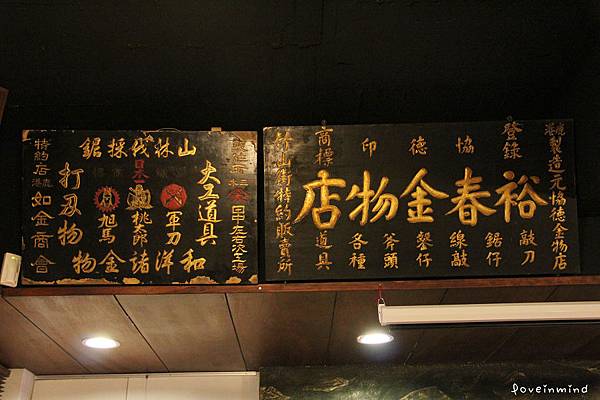 鹿港 製造元協德金物店
登錄 協德印 商標
裕春金物店
敲刀 鋸仔 線敲 鑿仔 斧頭 各種 道具
竹山街特約販賣所
山林伐採鋸
大工道具
日本
軍刀 桃太郎 旭馬
打刃物
和洋諸金物
特約店 鹿港 如金商會
loveinmind